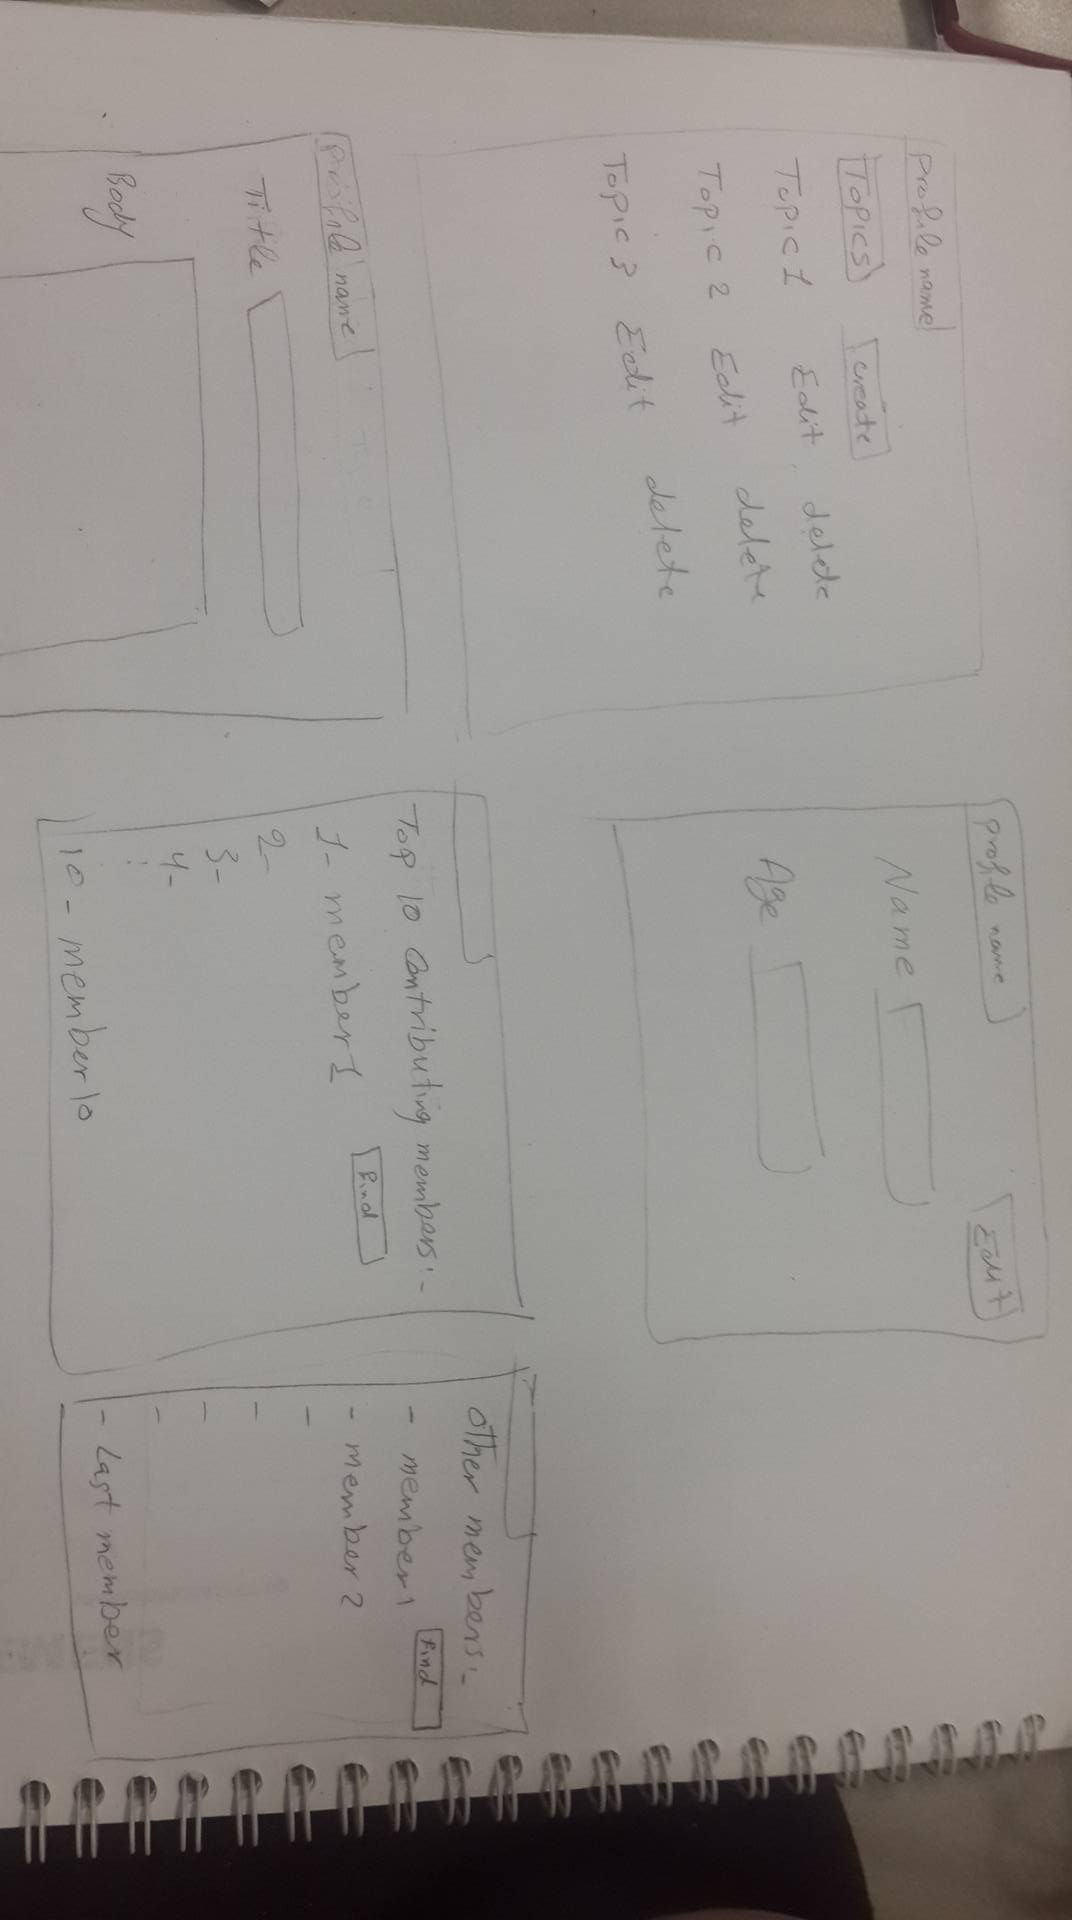 Profile name
TOPICS create
Topic 1 Edit delete
Topic 2 Edit delete
Topic 3 Edit delete
profile name Edit
Name
Age
profile name
Title
Body
Top 10 Contributing members:-
Find
1- member 1
2-
3-
4-
10- member 10
Other members:-
Find
- member 1
- member 2
-
-
-
-
- Last member